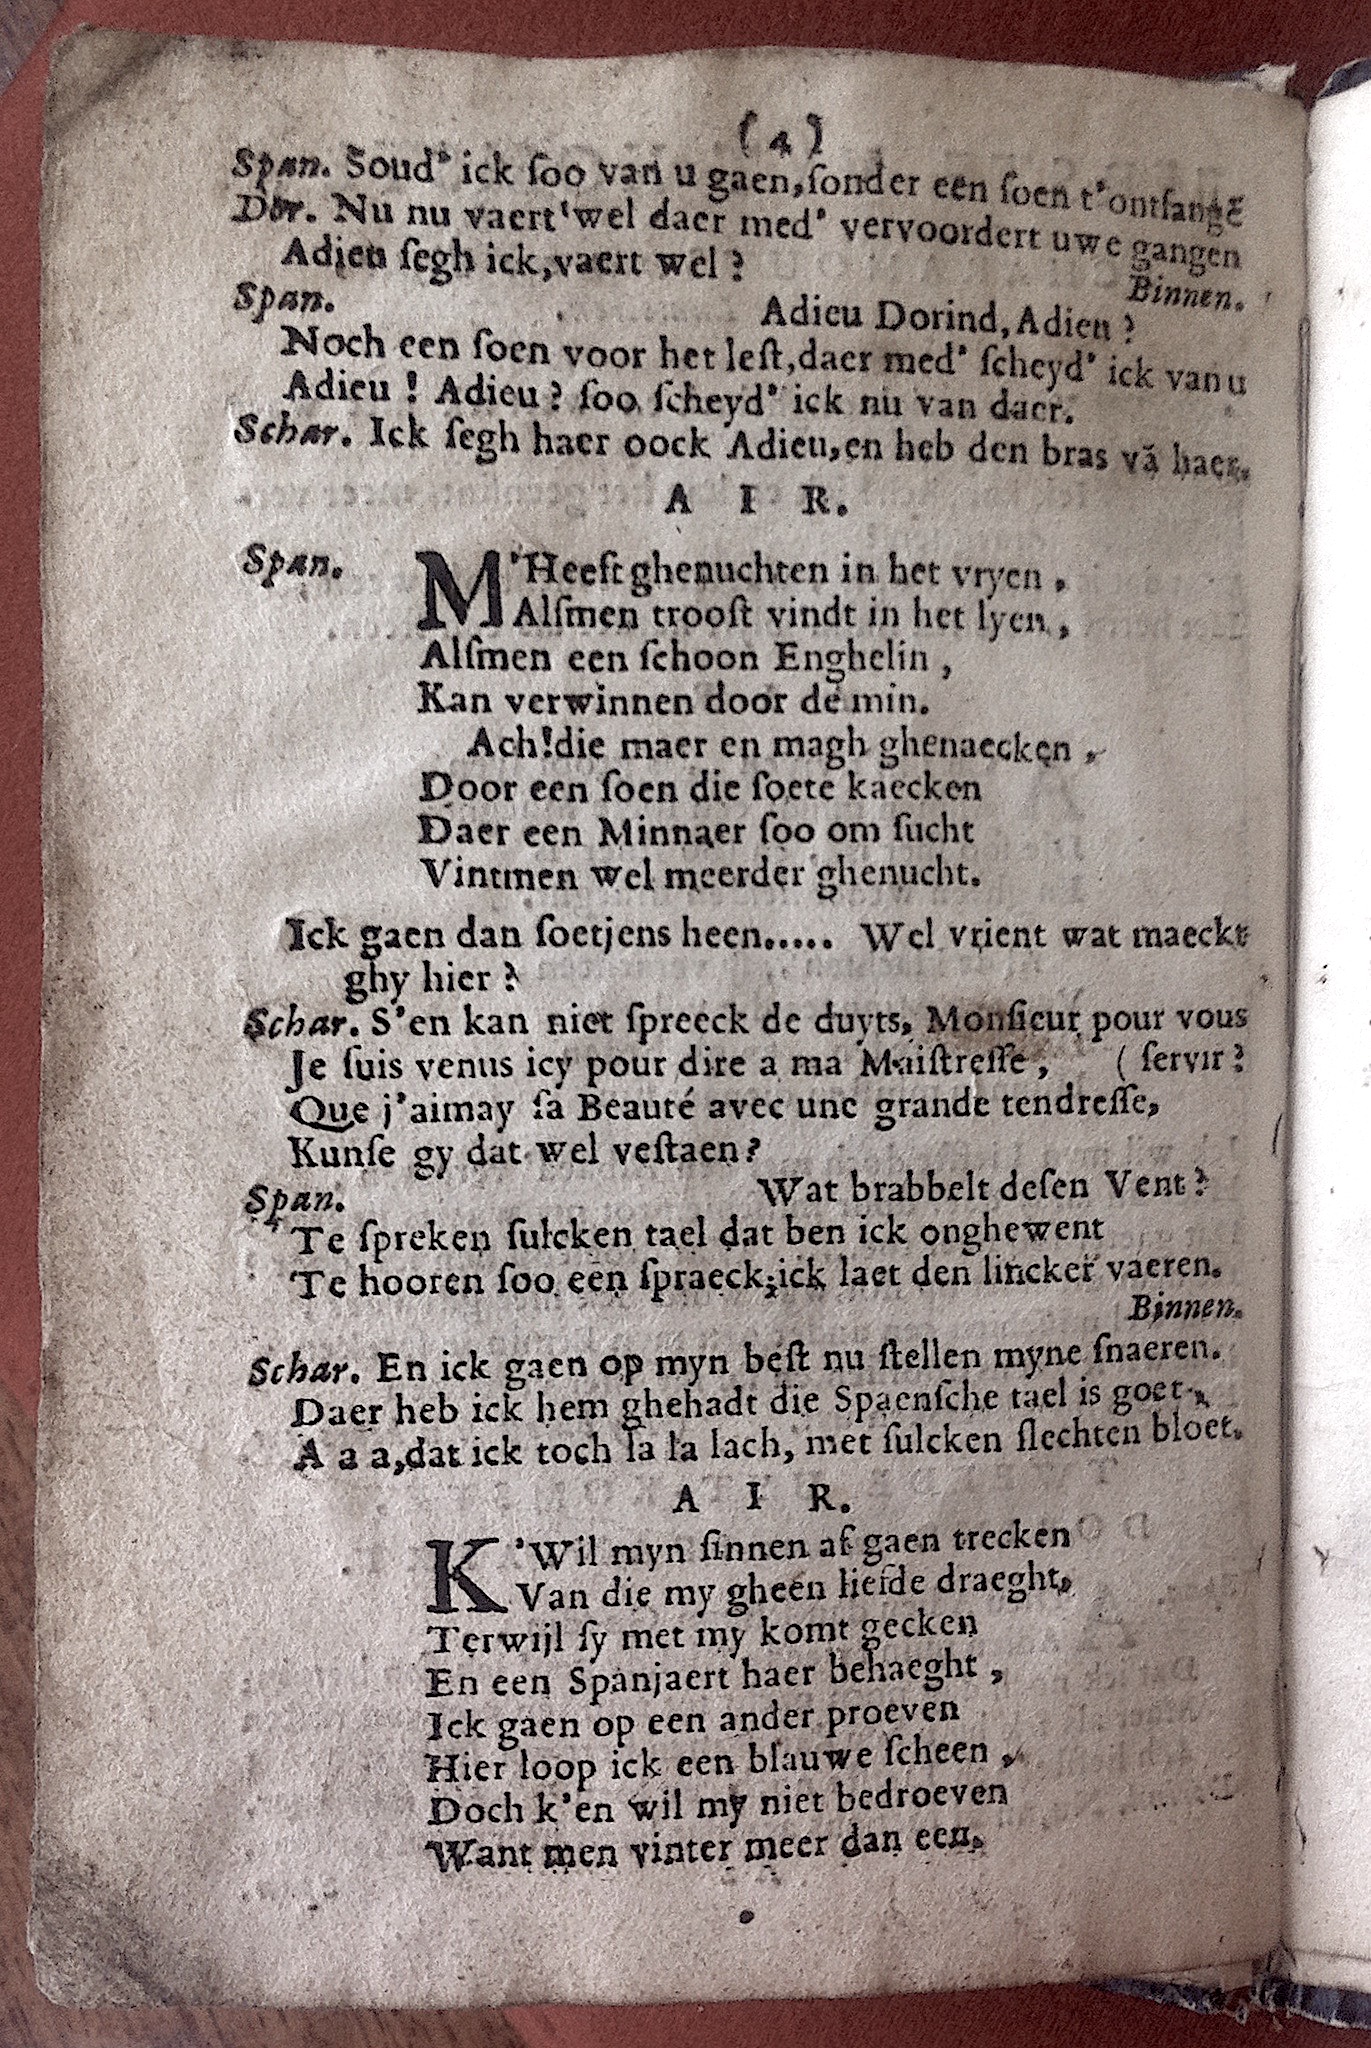 (4)
Span. Soud' ick ſoo van u gaen,ſonder een ſoen t'ontfangẽ
Dor. Nu nu vaert'wel daer med' vervoordert uwe gangen
Adieu ſegh ick,vaert wel ?
Binnen.
Span. Adieu Dorind,Adieu ?
Noch een ſoen voor het leſt,daer med' ſcheyd' ick van u
Adieu ! Adieu ? ſoo ſcheyd' ick nu van daer.
Schar. Ick ſegh haer oock Adieu,en heb den bras vã haer.
A I R.
Span. M'Heeft ghenuchten in het vryen ,
Alſmen trooſt vindt in het lyen ,
Alſmen een ſchoon Enghelin ,
Kan verwinnen door de min.
Ach!die maer en magh ghenaecken ,
Door een ſoen die ſoete kaecken
Daer een Minnaer ſoo om ſucht
Vintmen wel meerder ghenucht.
Ick gaen dan ſoetjens heen..... Wel vrient wat maeckt
ghy hier ?
Schar. S'en kan niet ſpreeck de duyts, Monſieur pour vous
Je ſuis venus icy pour dire a ma Maiſtreſſe , ( ſervir ?
Que j'aimay ſa Beauté avec une grande tendreſſe,
Kunſe gy dat wel veſtaen ?
Span. Wat brabbelt deſen Vent ?
Te ſpreken ſulcken tael dat ben ick onghewent
Te hooren ſoo een ſpraeck;ick laet den lincker vaeren.
Binnen.
Schar. En ick gaen op myn beſt nu ſtellen myne ſnaeren.
Daer heb ick hem ghehadt die Spaenſche tael is goet,
A a a,dat ick toch la la lach, met ſulcken ſlechten bloet.
A I R.
K'Wil myn ſinnen af gaen trecken
Van die my gheen liefde draeght,
Terwijl ſy met my komt gecken
En een Spanjaert haer behaeght ,
Ick gaen op een ander proeven
Hier loop ick een blauwe ſcheen ,
Doch k'en wil my niet bedroeven
Want men vinter meer dan een.